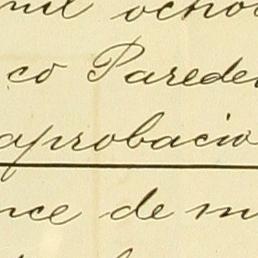 mil ocho
co Parede
aprobacio
nce de m